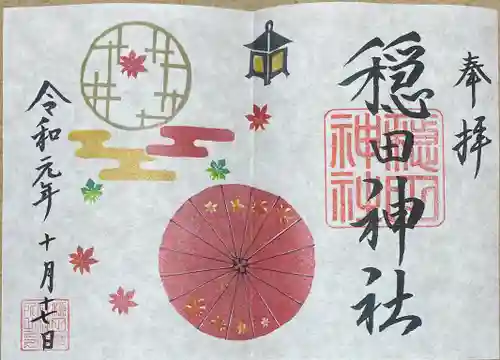 奉拝
穏田神社
穏田
神社
令和元年
十月十七日